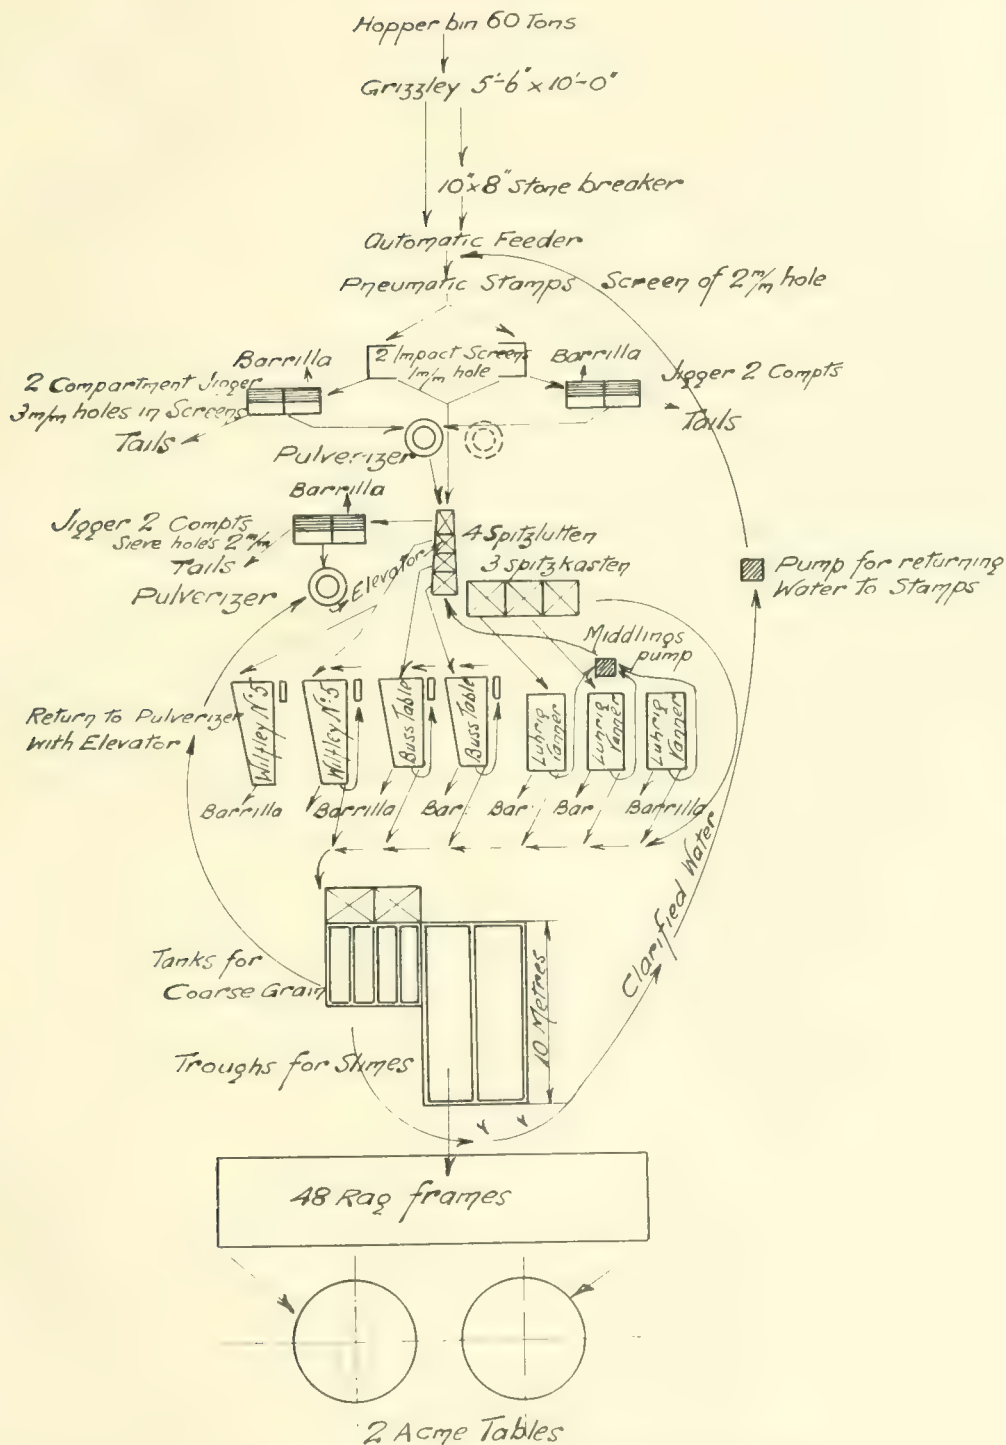 Hopper bin 60 Tons
Grizzley 5'-6" x 10'-0"
10" x 8" stone breaker
Automatic Feeder
Pneumatic Stamps
Screen of 2 m/m hole
2 Impact Screens
1 m/m hole
Barrilla
2 Compartment Jigger
3 m/m holes in Screens
Tails
Barrilla
Jigger 2 Compts
Tails
Pulverizer
Barrilla
Jigger 2 Compts
Sieve hole's 2 m/m
Tails
Pulverizer
Elevator
4 Spitzlutten
3 spitzkasten
Pump for returning
Water To Stamps
Middlings
pump
Return to Pulverizer
with Elevator
Wilfley No 5
Wilfley No 5
Buss Table
Buss Table
Luhrig
Vanner
Luhrig
Vanner
Luhrig
Vanner
Barrilla
Barrilla
Bar
Bar
Bar
Barrilla
Clarified Water
Tanks for
Coarse Grain
10 Metres
Troughs for Slimes
48 Rag frames
2 Acme Tables